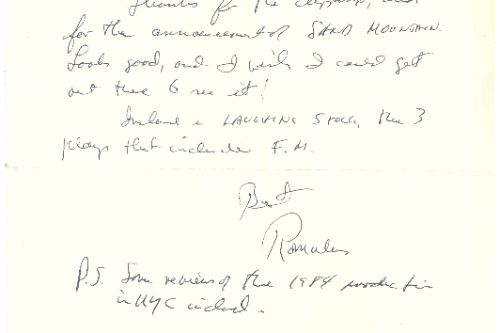 Thanks for the clippings, and
for the announcement of SAND MOUNTAIN.
Looks good, and I wish I could get
out there to see it!
Enclosed is LAUGHING STOCK, the 3
plays that include F.M.
Best
Romulus
P.S. Some reviews of the 1984 production
in NYC enclosed.